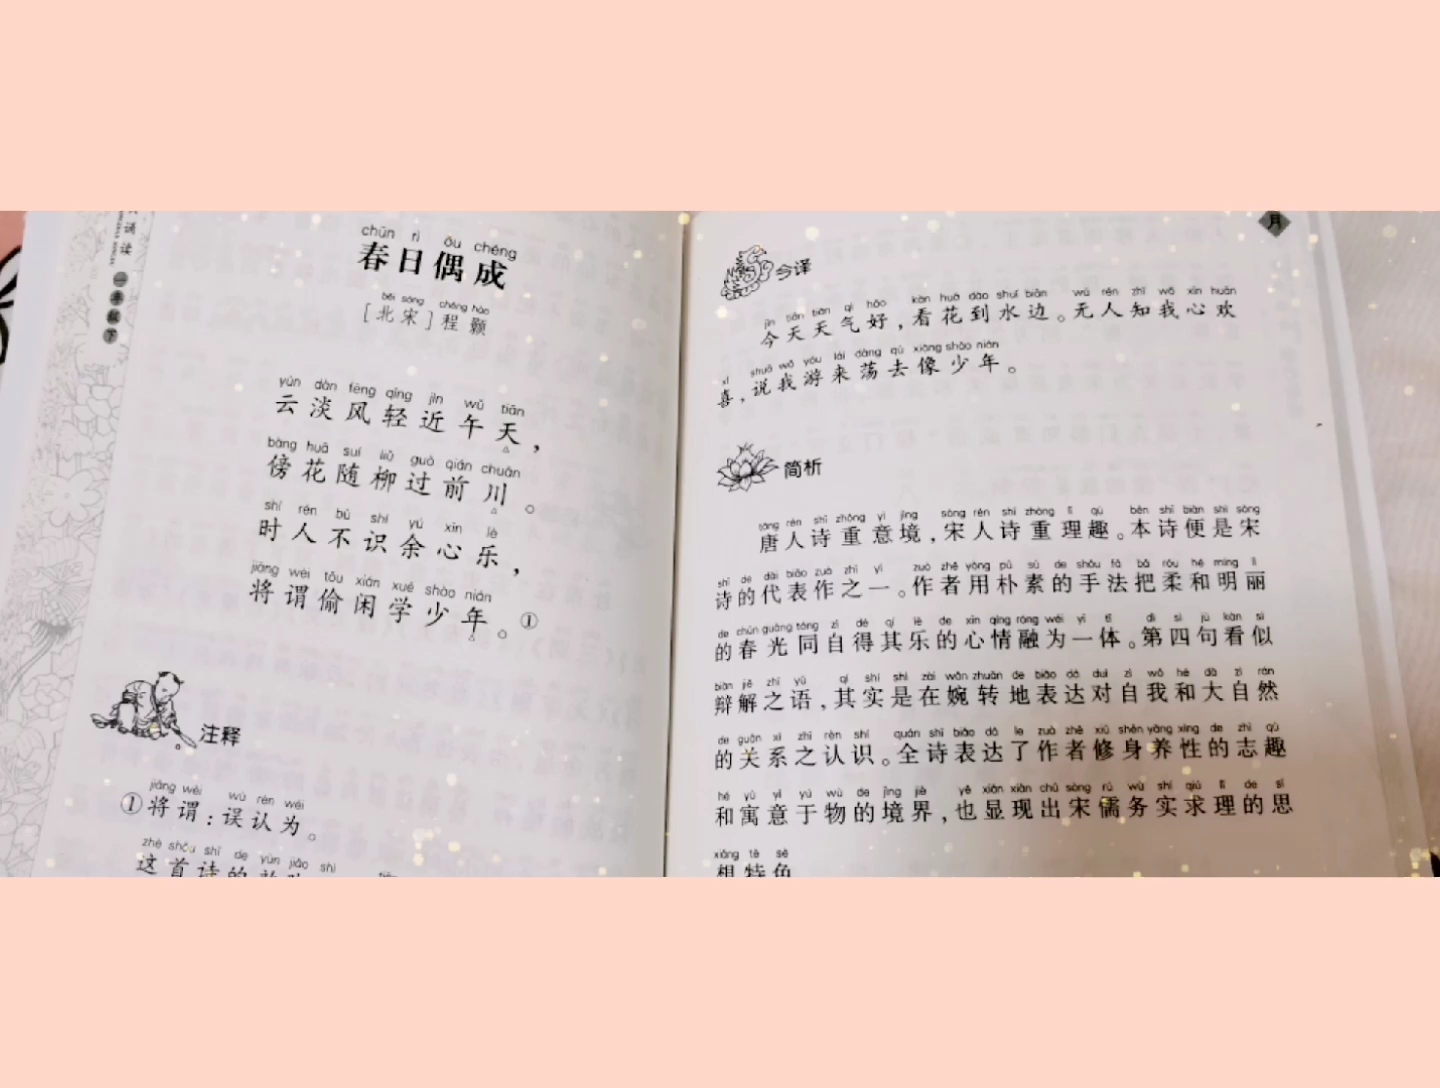 诵读
一年级下
chūn rì ǒu chéng
春日偶成
běi sòng chéng hào
[北宋]程颢
yún dàn fēng qīng jìn wǔ tiān
云淡风轻近午天，
bàng huā suí liǔ guò qián chuān
傍花随柳过前川。
shí rén bù shí yú xīn lè
时人不识余心乐，
jiāng wèi tōu xián xué shào nián
将谓偷闲学少年。①
注释
jiāng wèi wù rèn wéi
①将谓：误认为。
zhè shǒu shī de yùn jiǎo shì
这首诗的韵脚
月
今译
jīn tiān tiān qì hǎo kàn huā dào shuǐ biān wú rén zhī wǒ xīn huān
今天天气好，看花到水边。无人知我心欢
xǐ shuō wǒ yóu lái dàng qù xiàng shào nián
喜，说我游来荡去像少年。
简析
táng rén shī zhòng yì jìng sòng rén shī zhòng lǐ qù běn shī biàn shì sòng
唐人诗重意境，宋人诗重理趣。本诗便是宋
shī de dài biǎo zuò zhī yī zuò zhě yòng pǔ sù de shǒu fǎ bǎ róu hé míng lì
诗的代表作之一。作者用朴素的手法把柔和明丽
de chūn guāng tóng zì dé qí lè de xīn qíng róng wéi yī tǐ dì sì jù kàn sì
的春光同自得其乐的心情融为一体。第四句看似
biàn jiě zhī yǔ qí shí shì zài wǎn zhuǎn de biǎo dá duì zì wǒ hé dà zì rán
辩解之语，其实是在婉转地表达对自我和大自然
de guān xì zhī rèn shi quán shī biǎo dá le zuò zhě xiū shēn yǎng xìng de zhì qù
的关系之认识。全诗表达了作者修身养性的志趣
hé yù yì yú wù de jìng jiè yě xiǎn xiàn chū sòng rú wù shí qiú lǐ de sī
和寓意于物的境界，也显现出宋儒务实求理的思
xiǎng tè sè
想特色